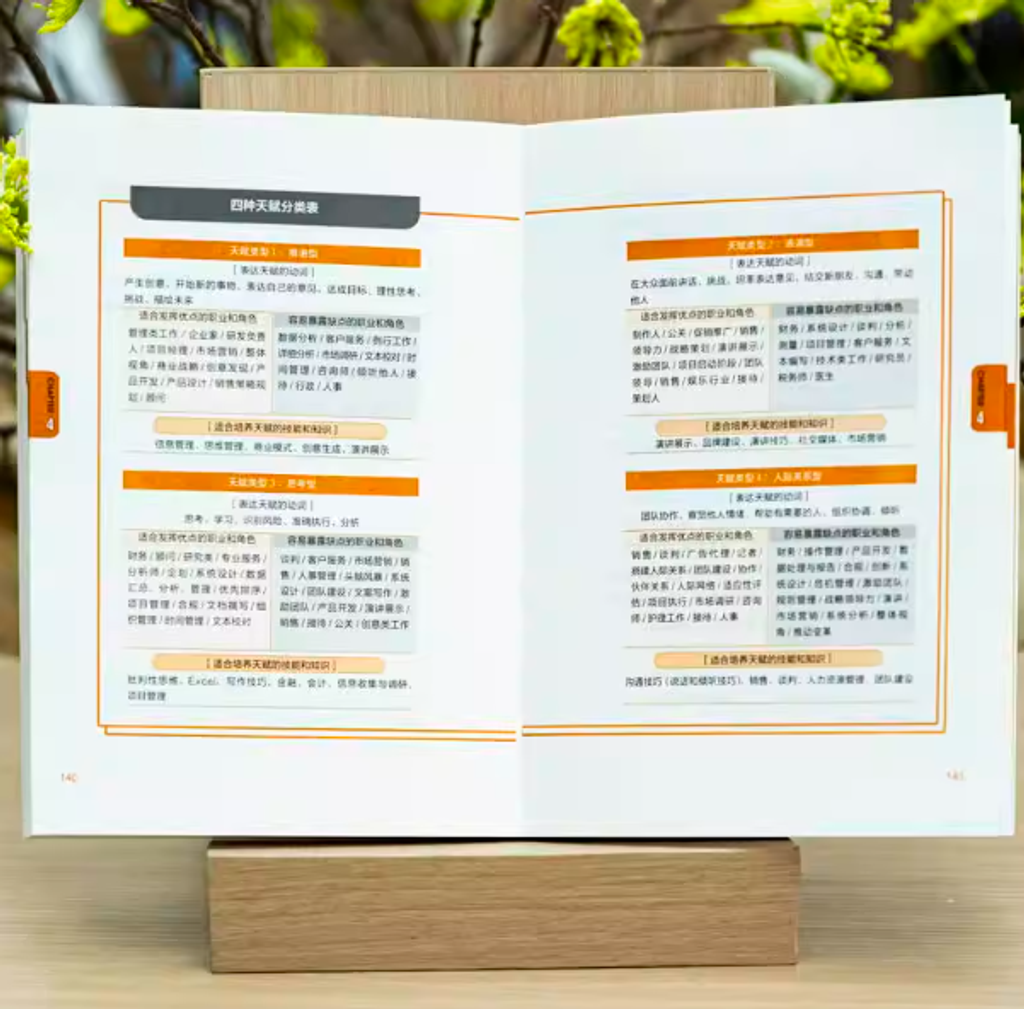 四种天赋分类表
天赋类型1：推进型
[ 表达天赋的动词 ]
产生创意、开始新的事物、表达自己的意见、达成目标、理性思考、
挑战、描绘未来
适合发挥优点的职业和角色
管理类工作 / 企业家 / 研发负责
人 / 项目经理 / 市场营销 / 整体
视角 / 商业战略 / 创意发现 / 产
品开发 / 产品设计 / 销售策略规
划 / 顾问
容易暴露缺点的职业和角色
数据分析 / 客户服务 / 例行工作 /
详细分析 / 市场调研 / 文本校对 / 时
间管理 / 咨询师 / 倾听他人 / 接
待 / 行政 / 人事
[ 适合培养天赋的技能和知识 ]
信息管理、思维管理、商业模式、创意生成、演讲展示
天赋类型3：思考型
[ 表达天赋的动词 ]
思考、学习、识别风险、准确执行、分析
适合发挥优点的职业和角色
财务 / 顾问 / 研究类 / 专业服务 /
分析师 / 企划 / 系统设计 / 数据
汇总、分析、管理 / 优先排序 /
项目管理 / 合规 / 文档撰写 / 组
织管理 / 时间管理 / 文本校对
容易暴露缺点的职业和角色
谈判 / 客户服务 / 市场营销 / 销
售 / 人事管理 / 头脑风暴 / 系统
设计 / 团队建设 / 文案写作 / 激
励团队 / 产品开发 / 演讲展示 /
销售 / 接待 / 公关 / 创意类工作
[ 适合培养天赋的技能和知识 ]
批判性思维、Excel、写作技巧、金融、会计、信息收集与调研、
项目管理
CHAPTER 4
140
天赋类型2：表演型
[ 表达天赋的动词 ]
在大众面前讲话、挑战、坦率表达意见、结交新朋友、沟通、带动
他人
适合发挥优点的职业和角色
制作人 / 公关 / 促销推广 / 销售 /
领导力 / 战略策划 / 演讲展示 /
激励团队 / 项目启动阶段 / 团队
领导 / 销售 / 娱乐行业 / 接待 /
策划人
容易暴露缺点的职业和角色
财务 / 系统设计 / 谈判 / 分析 /
测量 / 项目管理 / 客户服务 / 文
本编写 / 技术类工作 / 研究员 /
税务师 / 医生
[ 适合培养天赋的技能和知识 ]
演讲展示、品牌建设、演讲技巧、社交媒体、市场营销
天赋类型4：人际关系型
[ 表达天赋的动词 ]
团队协作、察觉他人情绪、帮助有需要的人、组织协调、倾听
适合发挥优点的职业和角色
销售 / 谈判 / 广告代理 / 记者 /
搭建人际关系 / 团队建设 / 协作
伙伴关系 / 人际网络 / 适应性评
估 / 项目执行 / 市场调研 / 咨询
师 / 护理工作 / 接待 / 人事
容易暴露缺点的职业和角色
财务 / 操作管理 / 产品开发 / 数
据处理与报告 / 合规 / 创新 / 系
统设计 / 危机管理 / 激励团队 /
规划管理 / 战略领导力 / 演讲 /
市场营销 / 系统分析 / 整体视
角 / 推动变革
[ 适合培养天赋的技能和知识 ]
沟通技巧（说话和倾听技巧）、销售、谈判、人力资源管理、团队建设
CHAPTER 4